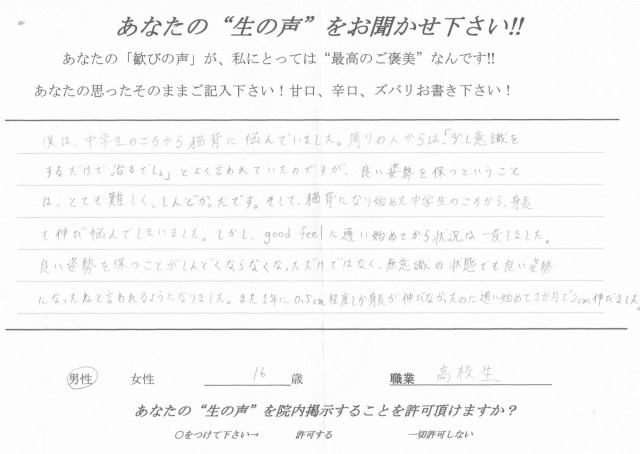 あなたの “生の声” をお聞かせ下さい!!
あなたの「歓びの声」が、私にとっては “最高のご褒美” なんです!!
あなたの思ったそのままご記入下さい！甘口、辛口、ズバリお書き下さい！
僕は、中学生のころから猫背に悩んでいました。周りの人からは、「少し意識を
するだけで治るでしょ」とよく言われていたのですが、良い姿勢を保つということ
は、とても難しく、しんどかったです。そして、猫背になり始めた中学生のころから、身長
も伸び悩んでしまいました。しかし、good feelに通い始めてから状況は一変しました。
良い姿勢を保つことがしんどくならなくなっただけではなく、無意識の状態でも良い姿勢
になったねと言われるようになりました。また1年に0.5cm程度しか身長が伸びなかったのに通い始めて1か月で2cm伸びました。
男性 女性 16 歳 職業 高校生
あなたの “生の声” を院内掲示することを許可頂けますか？
○をつけて下さい→ 許可する 一切許可しない